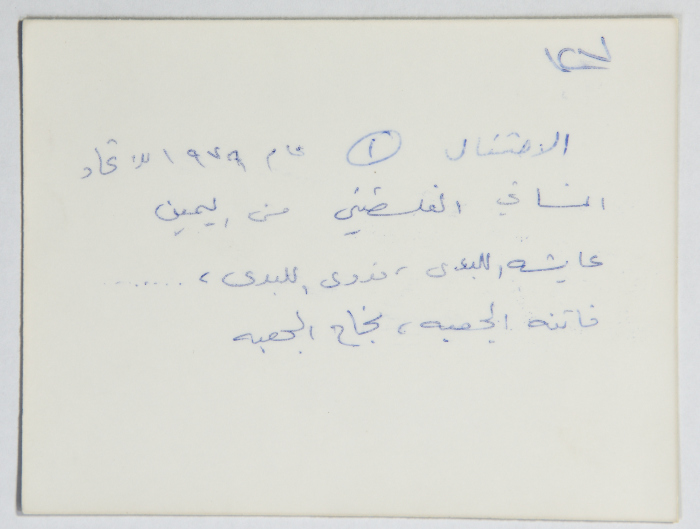 ١٢٧
الاحتفال ① عام ١٩٧٩ للاتحاد
النسائي الفلسطيني من اليمين
عايشه اللبدي ، فدوى اللبدي ، ........
فاتنه الجعبه ، نجاح الجعبه